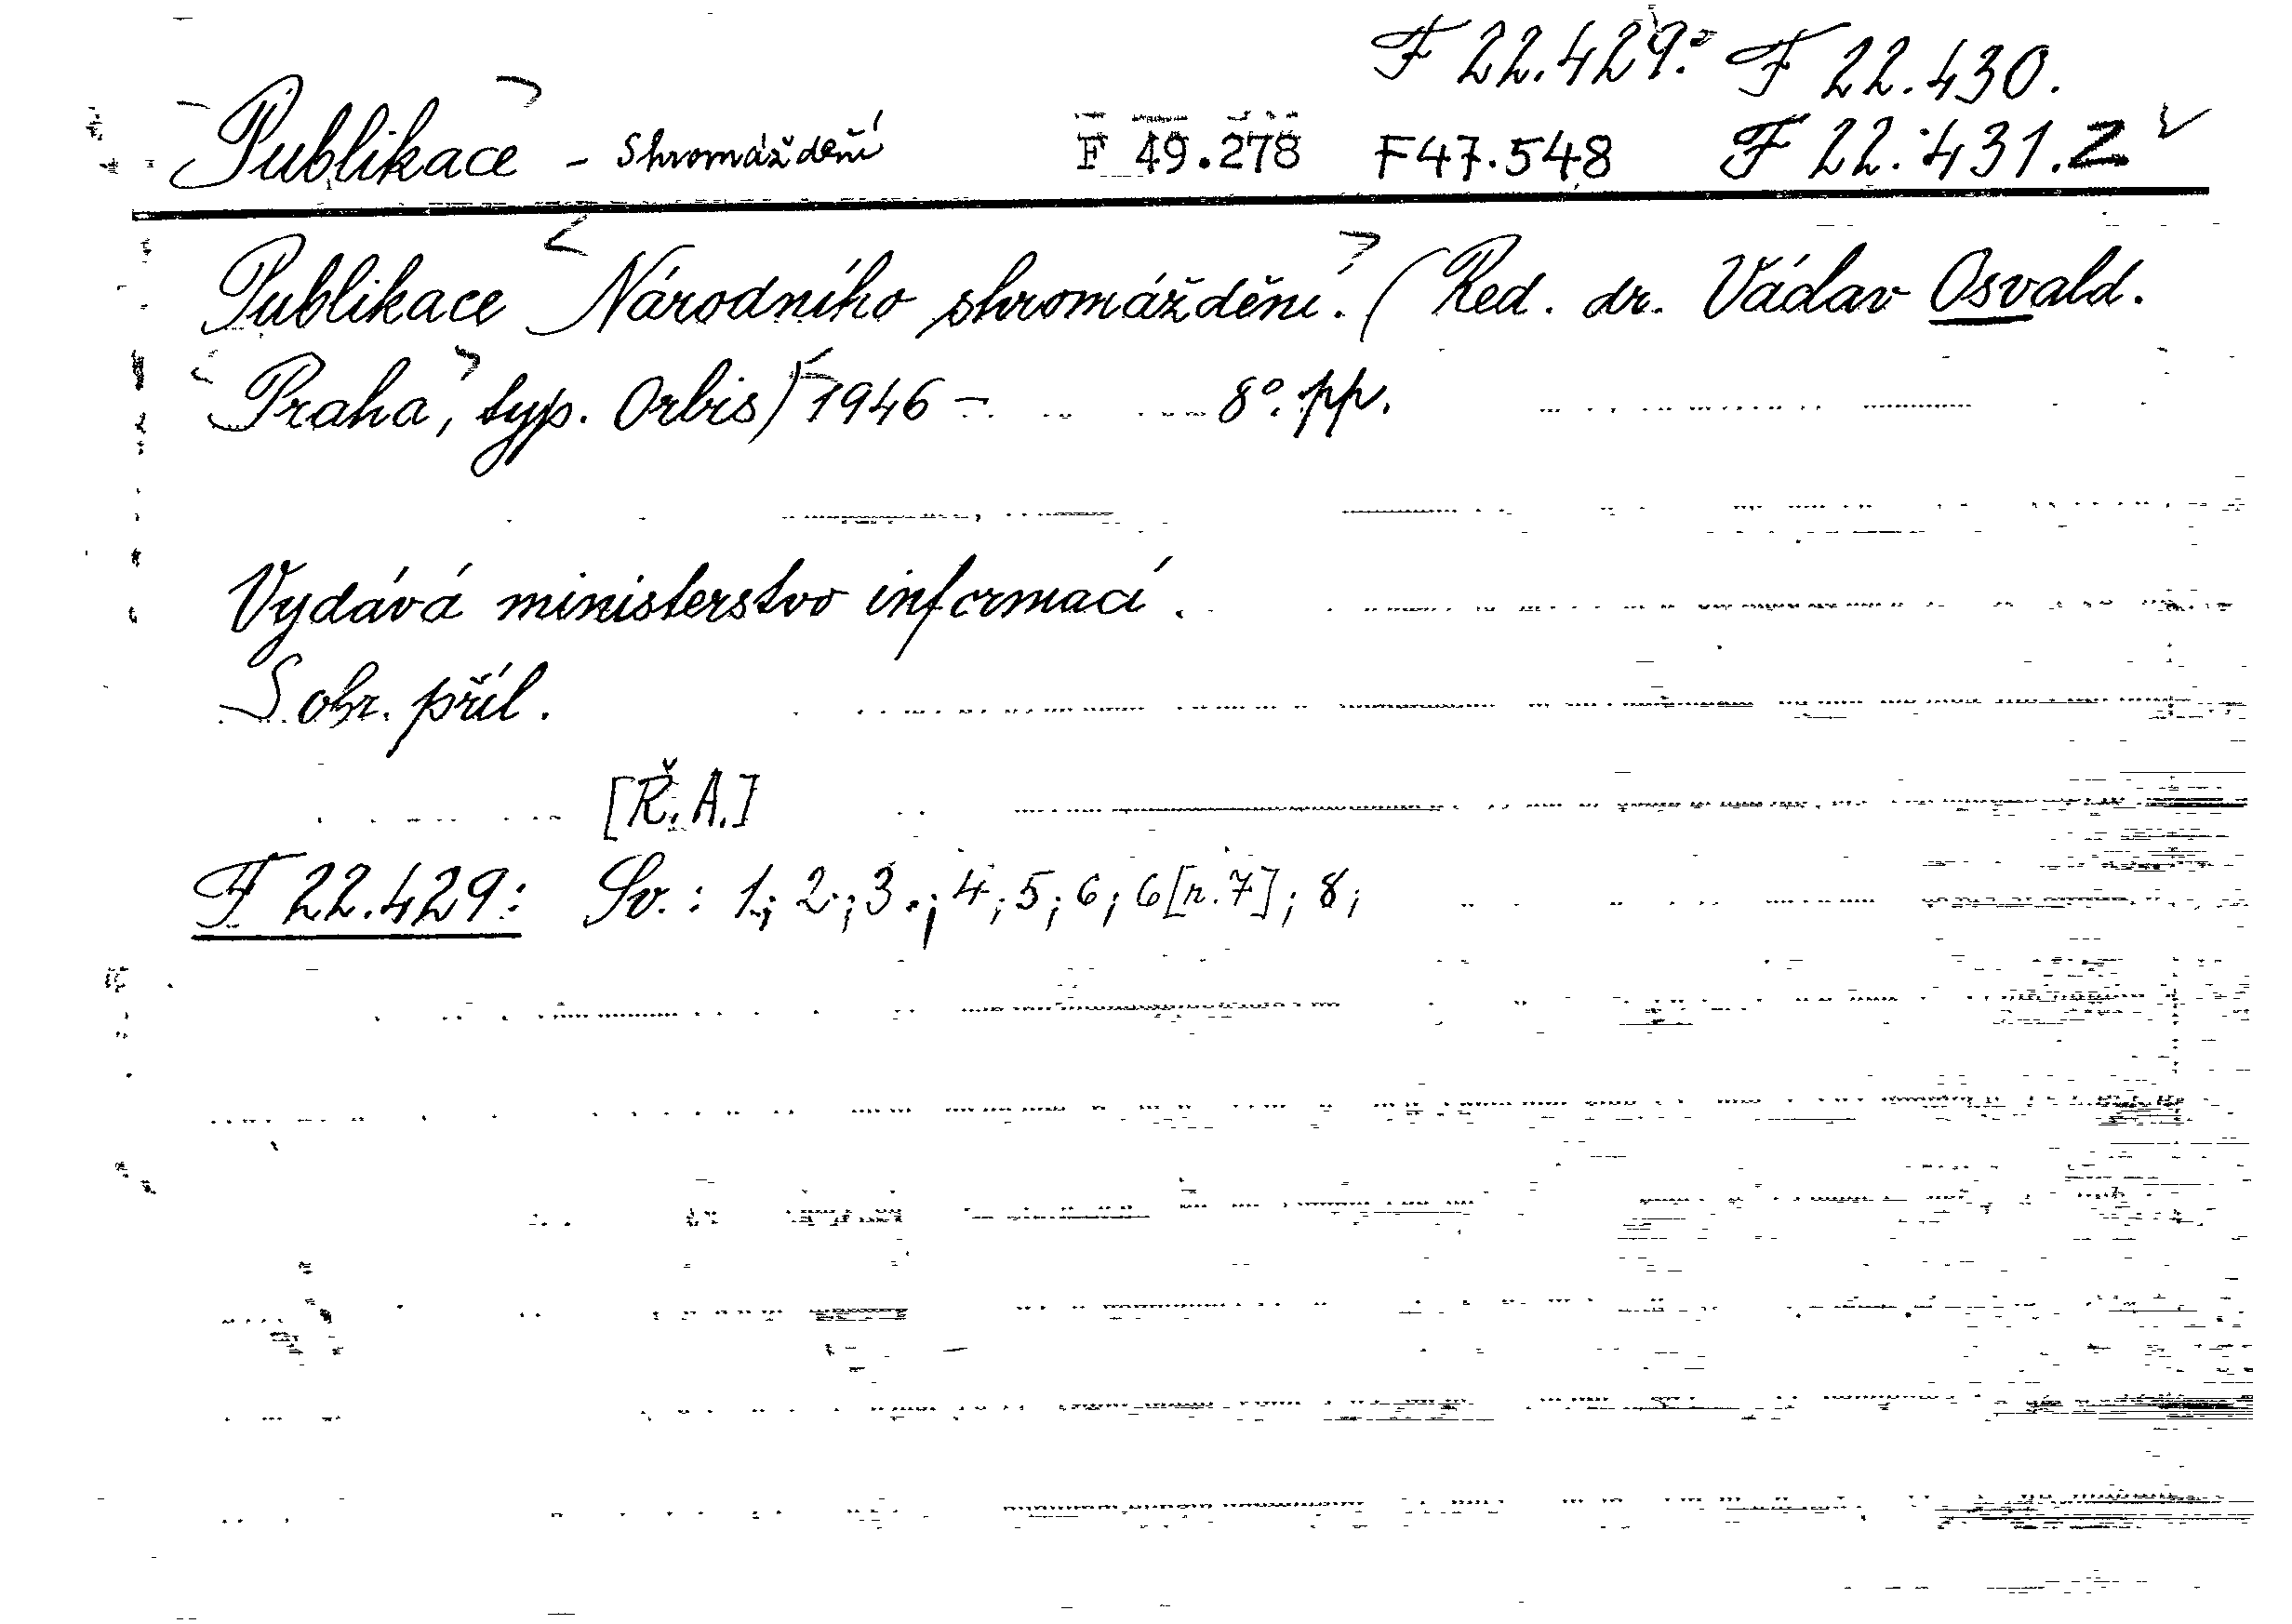 F 22.429. F 22.430.
Publikace - Shromáždění F 49.278 F47.548 F 22.431. Z
Publikace Národního shromáždění. (Red. dr. Václav Osvald.
Praha, typ. Orbis) 1946 - 8°. pp.
Vydává ministerstvo informací.
S obr. příl.
[Ř.A.]
F 22.429: Sv.: 1; 2; 3.; 4; 5; 6; 6[r.7]; 8;